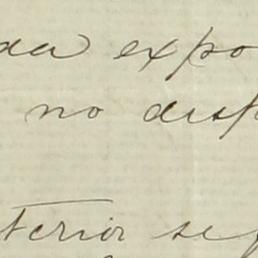 da expo
no disp
terior se